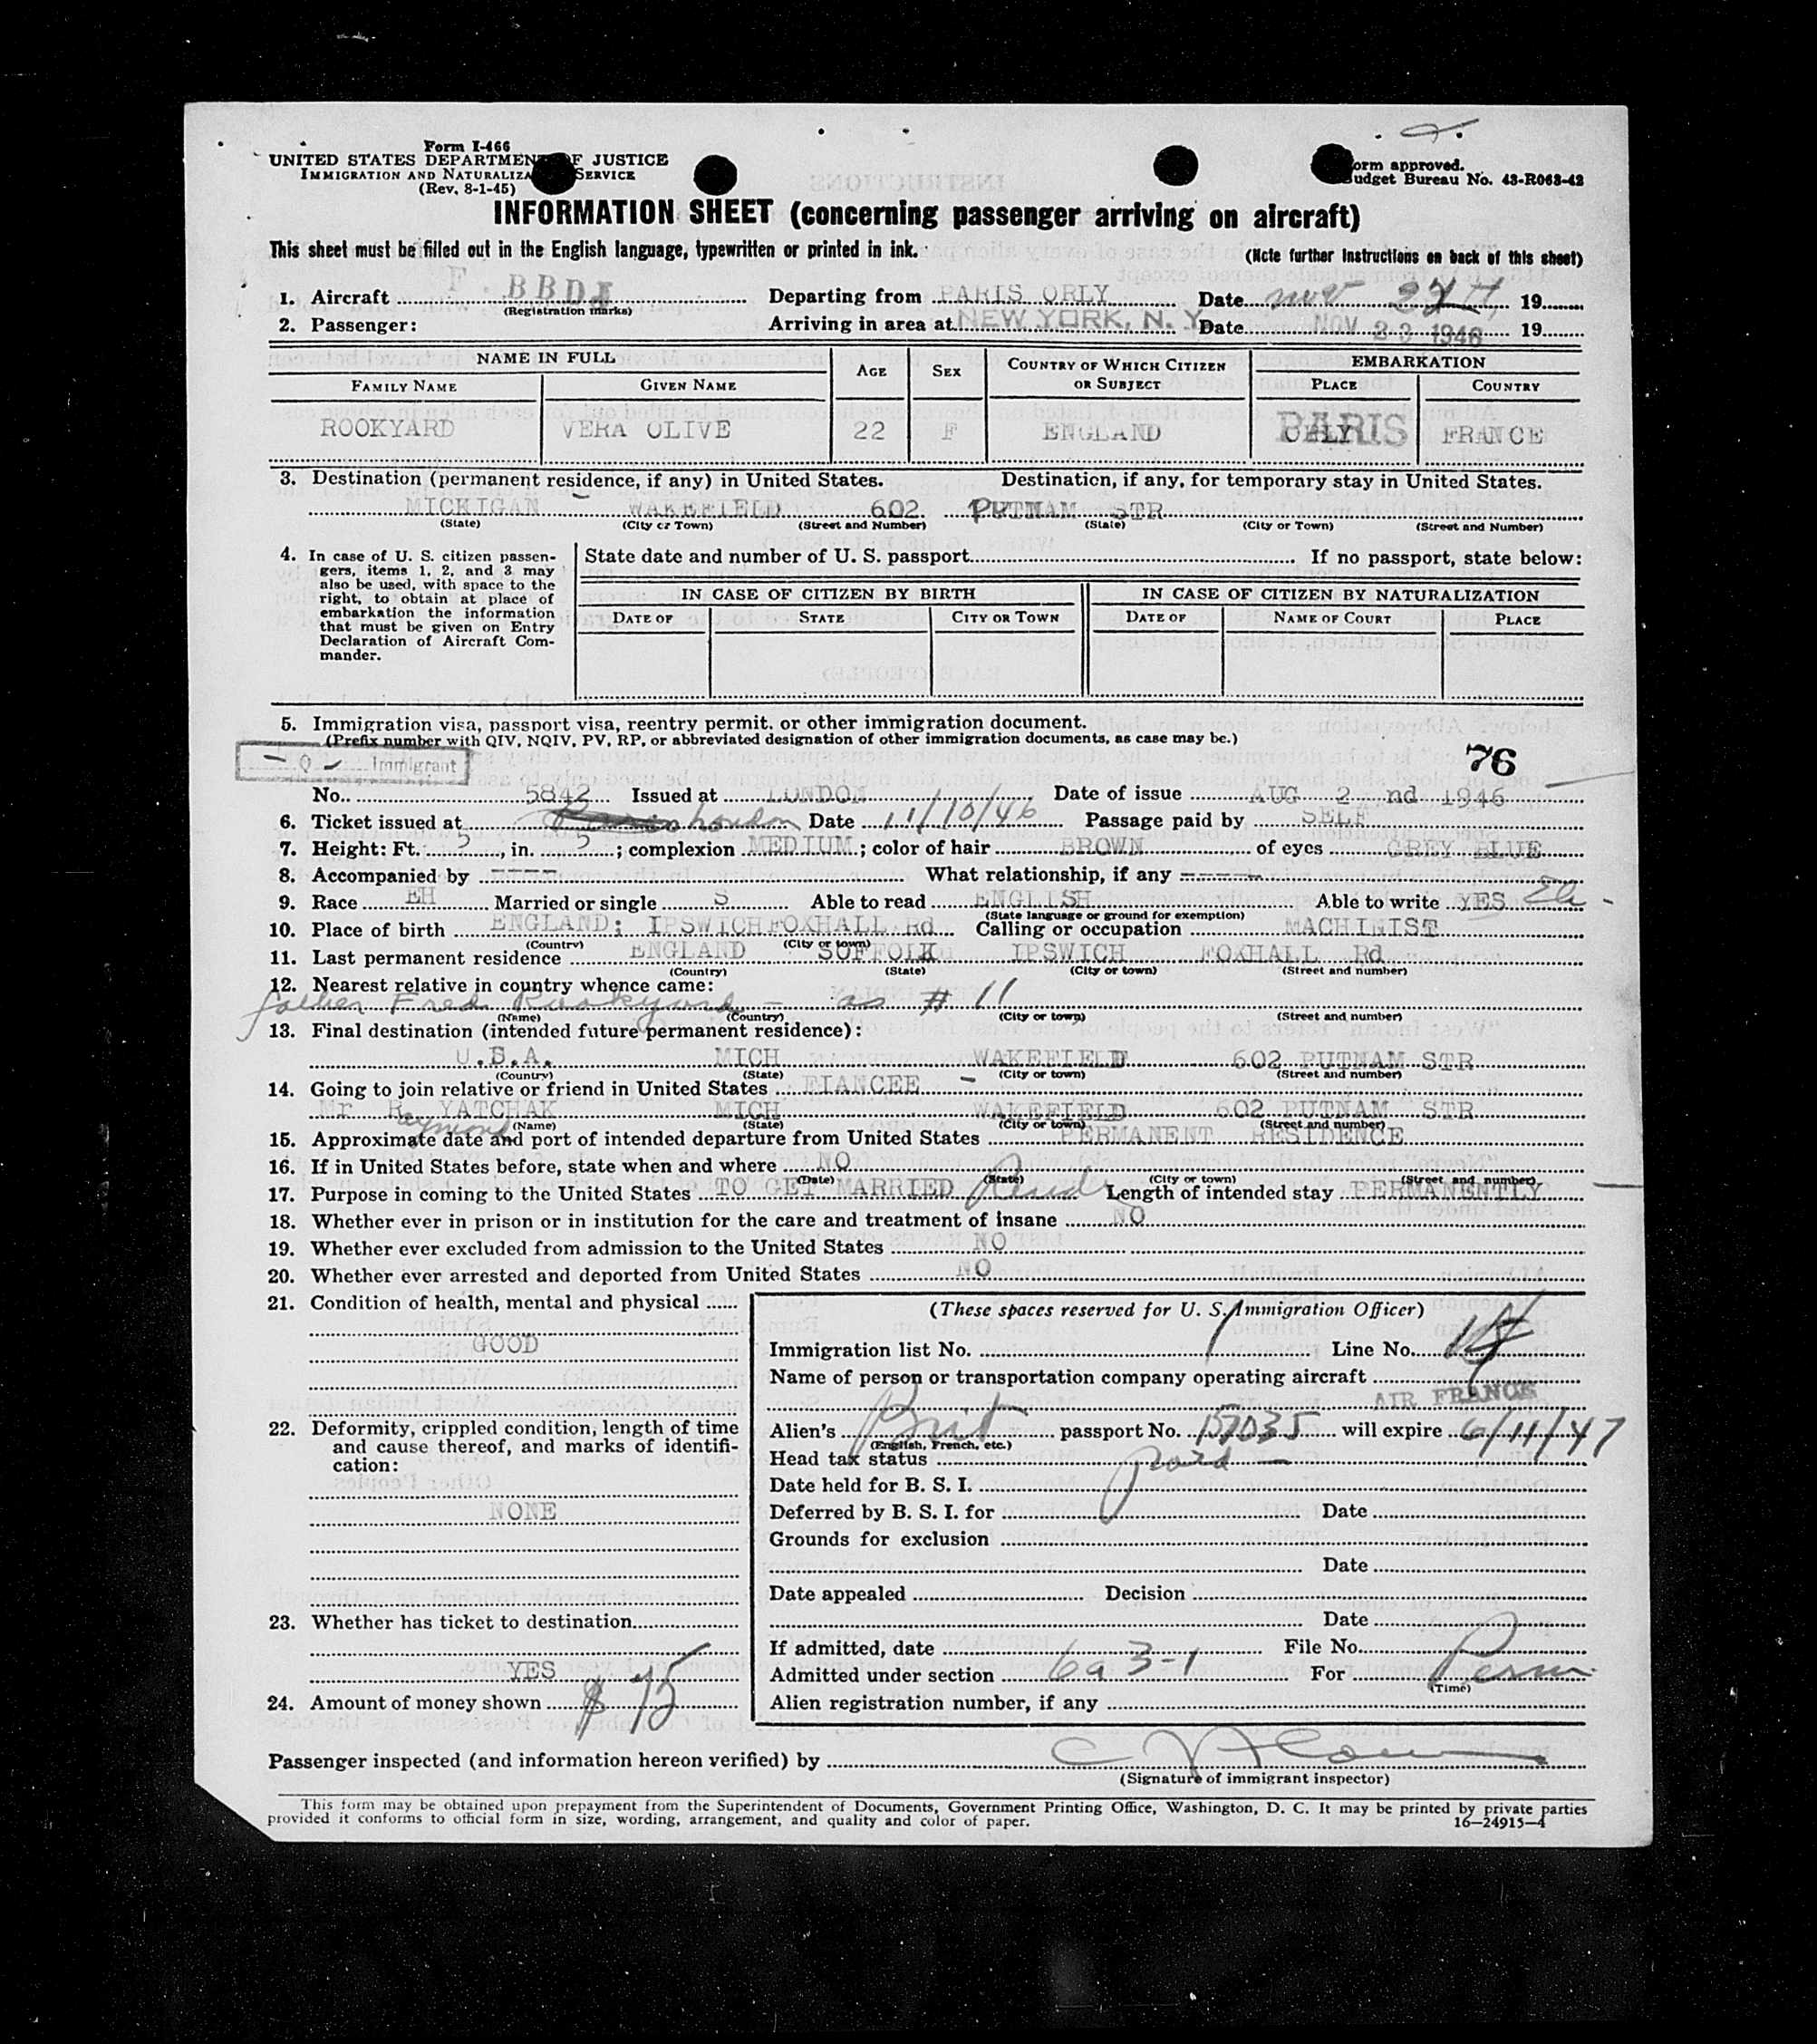 Form I-466
UNITED STATES DEPARTMENT OF JUSTICE
IMMIGRATION AND NATURALIZA SERVICE
(Rev. 8-1-45)
orm approved.
udget Bureau No. 43-R063-42
INFORMATION SHEET (concerning passenger arriving on aircraft)
This sheet must be filled out in the English language, typewritten or printed in ink.
(Note further instructions on back of this sheet)
1. Aircraft F. BBDI Departing from PARIS ORLY Date Nov 19
(Registration marks)
2. Passenger: Arriving in area at NEW YORK, N. Y. Date NOV 23 1946 19
NAME IN FULL AGE SEX COUNTRY OF WHICH CITIZEN OR SUBJECT EMBARKATION
FAMILY NAME GIVEN NAME PLACE COUNTRY
ROOKYARD VERA OLIVE 22 F ENGLAND ORLY PARIS FRANCE
3. Destination (permanent residence, if any) in United States. Destination, if any, for temporary stay in United States.
MICKIGAN - WAKEFIELD 602 PUTNAM STR
(State) (City or Town) (Street and Number) (State) (City or Town) (Street and Number)
4. In case of U. S. citizen passen-
gers, items 1, 2, and 3 may
also be used, with space to the
right, to obtain at place of
embarkation the information
that must be given on Entry
Declaration of Aircraft Com-
mander.
State date and number of U. S. passport If no passport, state below:
IN CASE OF CITIZEN BY BIRTH IN CASE OF CITIZEN BY NATURALIZATION
DATE OF STATE CITY OR TOWN DATE OF NAME OF COURT PLACE
5. Immigration visa, passport visa, reentry permit, or other immigration document.
(Prefix number with QIV, NQIV, PV, RP, or abbreviated designation of other immigration documents, as case may be.)
- Q - Immigrant 76
No. 5842 Issued at LONDON Date of issue AUG 2 nd 1946
6. Ticket issued at London Date 11/10/46 Passage paid by SELF
7. Height: Ft. 5, in. 5; complexion MEDIUM; color of hair BROWN of eyes GREY BLUE
8. Accompanied by ---- What relationship, if any -----
9. Race EH Married or single S Able to read ENGLISH Able to write YES
(State language or ground for exemption)
10. Place of birth ENGLAND: IPSWICH FOXHALL Rd Calling or occupation MACHINIST
(Country) (City or town)
11. Last permanent residence ENGLAND SUFFOLK IPSWICH FOXHALL Rd
(Country) (State) (City or town) (Street and number)
12. Nearest relative in country whence came:
father Fred Rookyard - as # 11
(Name) (Country) (City or town) (Street and number)
13. Final destination (intended future permanent residence):
U.S.A. MICH WAKEFIELD 602 PUTNAM STR
(Country) (State) (City or town) (Street and number)
14. Going to join relative or friend in United States FIANCEE -
Mr Raymond YATCHAK MICH WAKEFIELD 602 PUTNAM STR
(Name) (State) (City or town) (Street and number)
15. Approximate date and port of intended departure from United States PERMANENT RESIDENCE
16. If in United States before, state when and where NO
(Date) (State) (City or town) (Street and number)
17. Purpose in coming to the United States TO GET MARRIED Reside Length of intended stay PERMANENTLY
18. Whether ever in prison or in institution for the care and treatment of insane NO
19. Whether ever excluded from admission to the United States NO
20. Whether ever arrested and deported from United States NO
21. Condition of health, mental and physical
GOOD
22. Deformity, crippled condition, length of time
and cause thereof, and marks of identifi-
cation:
NONE
23. Whether has ticket to destination
YES
24. Amount of money shown $ 75
(These spaces reserved for U. S. Immigration Officer)
Immigration list No. 1 Line No. 14
Name of person or transportation company operating aircraft
AIR FRANCE
Alien's Brit passport No. 157035 will expire 6/11/47
(English, French, etc.)
Head tax status paid -
Date held for B. S. I.
Deferred by B. S. I. for Date
Grounds for exclusion
Date
Date appealed Decision
Date
If admitted, date File No.
Admitted under section 6a 3-1 For Perm
(Time)
Alien registration number, if any
Passenger inspected (and information hereon verified) by
(Signature of immigrant inspector)
This form may be obtained upon prepayment from the Superintendent of Documents, Government Printing Office, Washington, D. C. It may be printed by private parties
provided it conforms to official form in size, wording, arrangement, and quality and color of paper. 16—24915-4